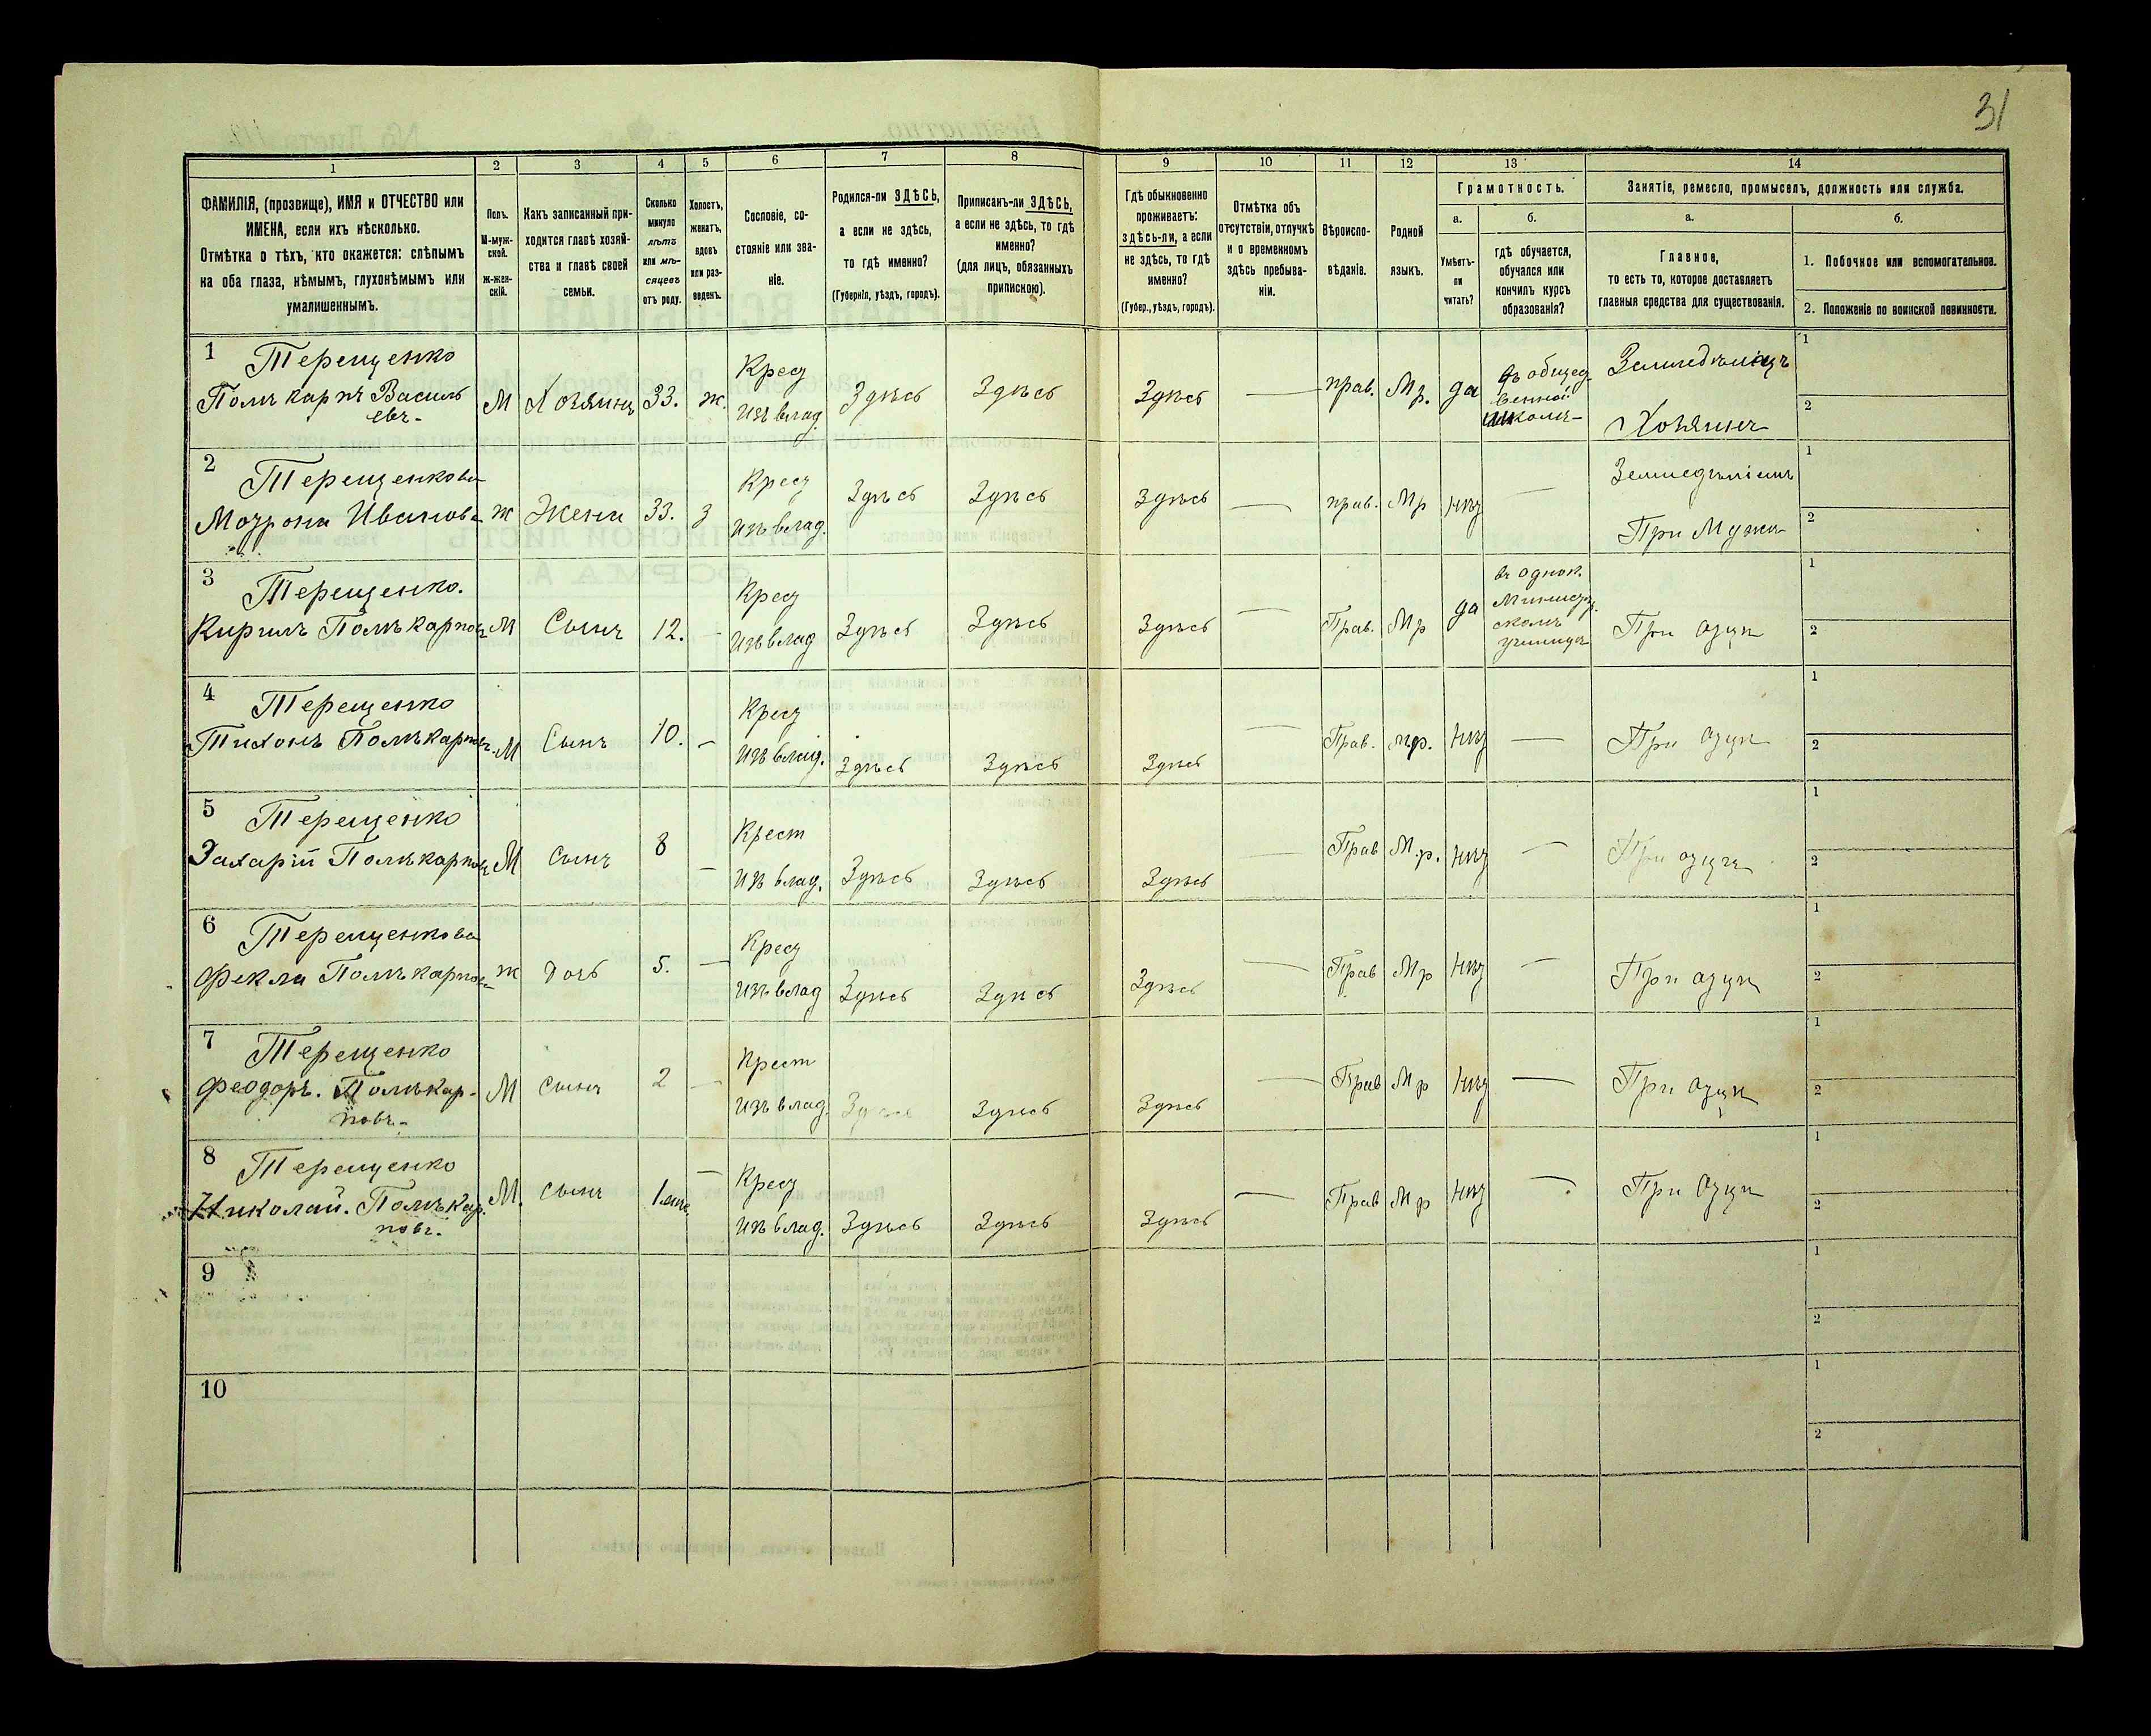 31
1
2
3
4
5
6
7
8
9
10
11
12
13
14
ФАМИЛІЯ, (прозвище), ИМЯ и ОТЧЕСТВО или
ИМЕНА, если ихъ нѣсколько.
Отмѣтка о тѣхъ, кто окажется: слѣпымъ
на оба глаза, нѣмымъ, глухонѣмымъ или
умалишеннымъ.
Полъ.
М-муж-
ской.
ж-жен-
скій.
Какъ записанный при-
ходится главѣ хозяй-
ства и главѣ своей
семьи.
Сколько
минуло
лѣтъ
или мѣ-
сяцевъ
отъ роду.
Холостъ,
женатъ,
вдовъ
или раз-
веденъ.
Сословіе, со-
стояніе или зва-
ніе.
Родился-ли ЗДѢСЬ,
а если не здѣсь,
то гдѣ именно?
(Губернія, уѣздъ, городъ).
Приписанъ-ли ЗДѢСЬ,
а если не здѣсь, то гдѣ
именно?
(для лицъ, обязанныхъ
припискою).
Гдѣ обыкновенно
проживаетъ:
здѣсь-ли, а если
не здѣсь, то гдѣ
именно?
(Губер., уѣздъ, городъ).
Отмѣтка объ
отсутствіи, отлучкѣ
и о временномъ
здѣсь пребыва-
ніи.
Вѣроиспо-
вѣданіе.
Родной
языкъ.
Грамотность.
а.
б.
Умѣетъ-
ли
читать?
гдѣ обучается,
обучался или
кончилъ курсъ
образованія?
Занятіе, ремесло, промыселъ, должность или служба.
а.
б.
Главное,
то есть то, которое доставляетъ
главныя средства для существованія.
1. Побочное или вспомогательное.
2. Положеніе по воинской повинности.
1 Терещенко
Поликарпъ Василь
евъ-
М Хозяинъ 33. ж.
Крест
изъ влад.
Здѣсь Здѣсь Здѣсь — прав. Мр. да
въ общест
венной
школѣ
Земледѣлецъ
Хозяинъ
1
2
2 Терещенкова
Мотрона Иванова
ж Жена 33. з
Крест
изъ влад.
Здѣсь Здѣсь Здѣсь — прав. Мр нѣт —
Земледѣліемъ
При Мужѣ
1
2
3 Терещенко.
Кирилъ Поликарповъ
М Сынъ 12. -
Крест
изъ влад
Здѣсь Здѣсь Здѣсь — Прав. Мр да
въ однок.
Министер.
скомъ
училищѣ
При отцѣ
1
2
4 Терещенко
Тихонъ Поликарповъ.
М Сынъ 10. -
Крест
изъ влад.
Здѣсь Здѣсь Здѣсь — Прав. Мр. нѣт — При отцѣ
1
2
5 Терещенко
Захарій Поликарповъ
М Сынъ 8 -
Крест
изъ влад.
Здѣсь Здѣсь Здѣсь — Прав М.р. нѣт — При отцѣ
1
2
6 Терещенкова
Фекла Поликарпова
ж дочь 5. —
Крест
изъ влад
Здѣсь Здѣсь Здѣсь — Прав Мр нѣт — При отцѣ
1
2
7 Терещенко
Феодоръ. Поликар-
повъ-
М Сынъ 2 —
Крест
изъ влад.
Здѣсь Здѣсь Здѣсь — Прав Мр нѣт — При отцѣ
1
2
8 Терещенко
Николай. Поликар.
повъ.
М. сынъ —
Крест
изъ влад.
Здѣсь Здѣсь Здѣсь — Прав Мр нѣт — При отцѣ
1
2
9
1
2
10
1
2